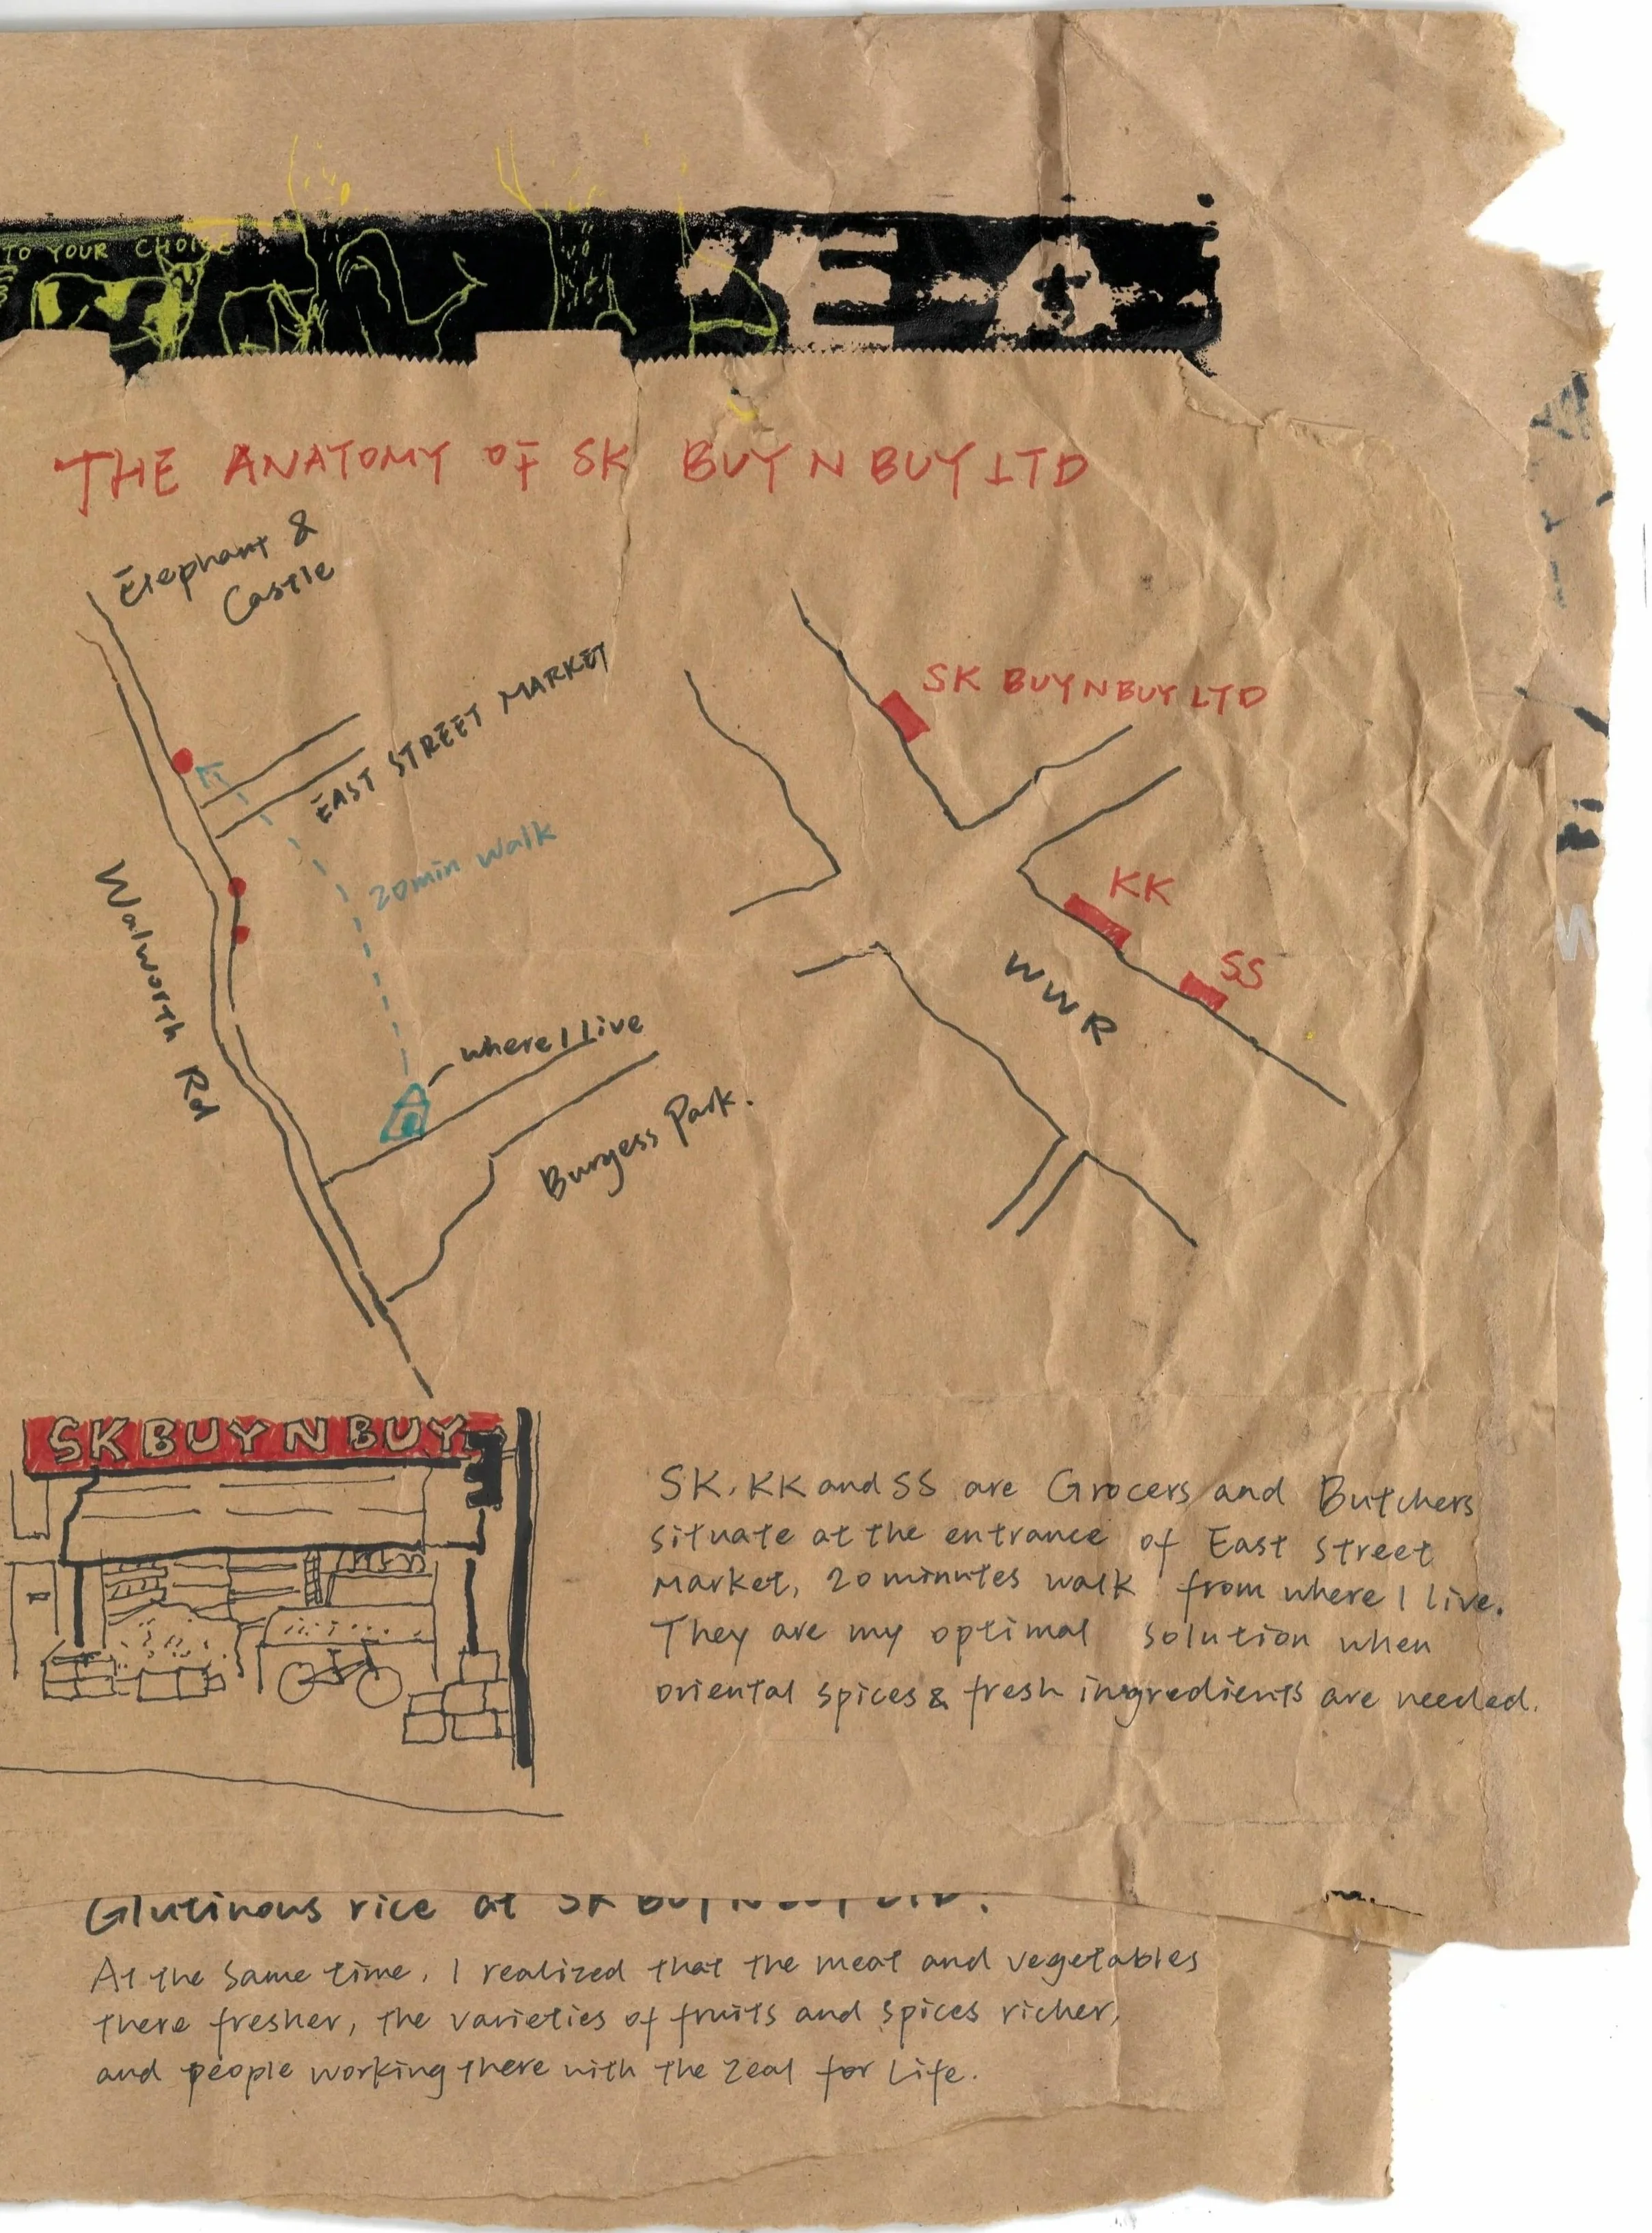 TO YOUR CHOICE
THE ANATOMY OF SK BUY N BUY LTD
Elephant &
Castle
EAST STREET MARKET
20min walk
Walworth Rd
where I Live
Burgess Park.
SK BUY N BUY LTD
KK
SS
WWR
SK BUY N BUY
SK, KK and SS are Grocers and Butchers
situate at the entrance of East Street
Market, 20 minutes walk from where I live.
They are my optimal solution when
oriental spices & fresh ingredients are needed.
Glutinous rice at SK BUY N BUY LTD.
At the same time, I realized that the meat and vegetables
there fresher, the varieties of fruits and spices richer,
and people working there with the zeal for Life.